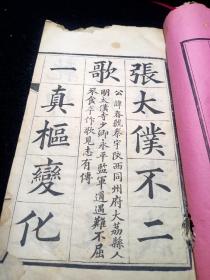 張太僕不二
歌
公諱春號泰宇陝西同州府大荔縣人
明太僕寺少卿永平監軍道遇難不屈
不食卒作歌見志有傳
一真樞變化